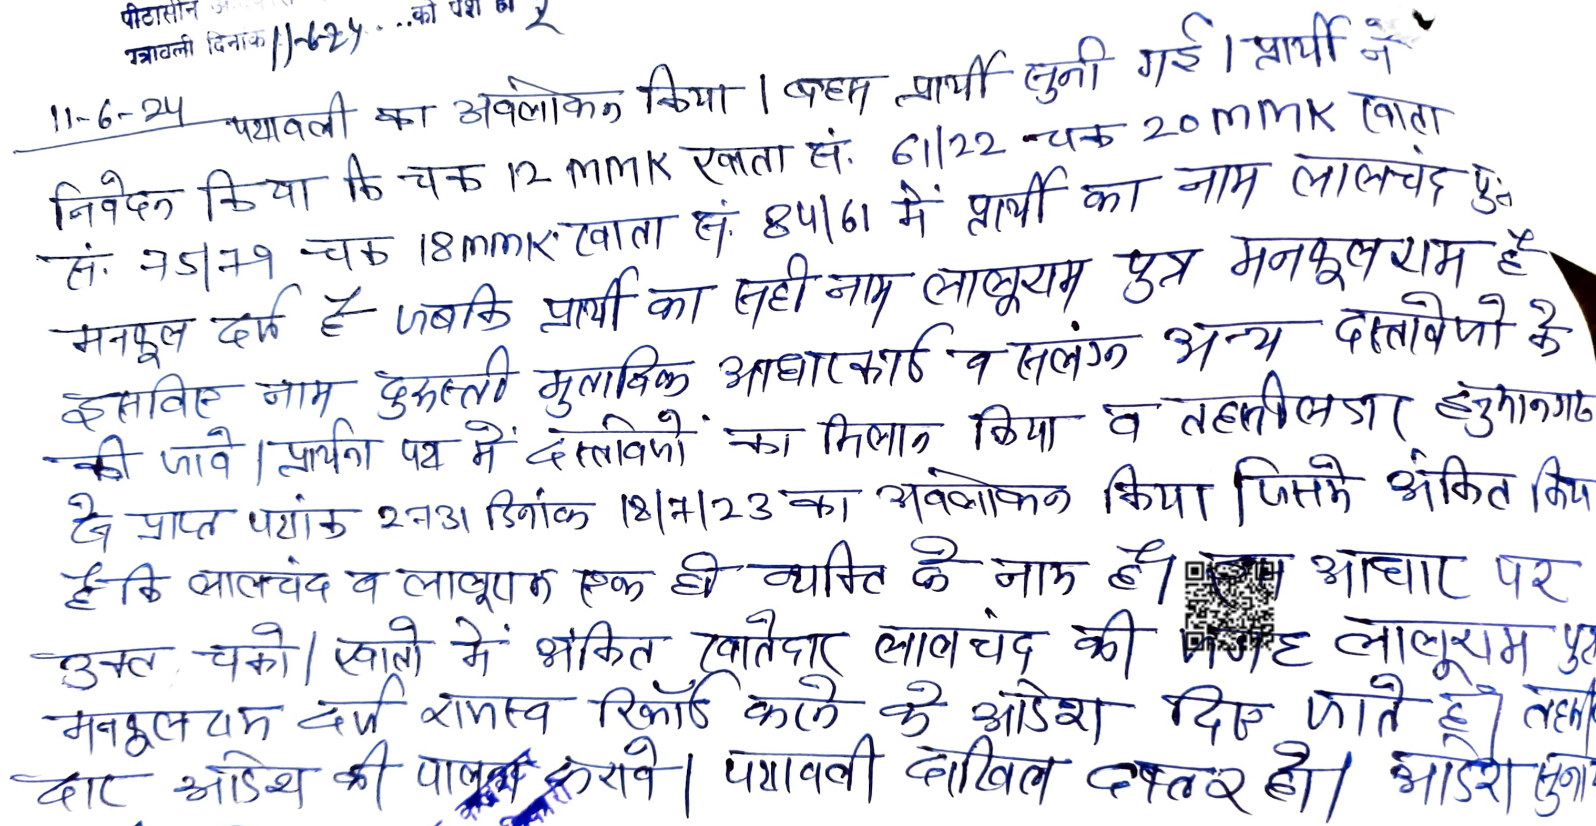 पीठासीन
पत्रावली दिनांक 11-6-24 को पेश हो
11-6-24 पत्रावली का अवलोकन किया । बहस प्रार्थी सुनी गई । प्रार्थी ने
निवेदन किया कि चक 12 MMK खाता सं. 61/22 चक 20 MMK खाता
सं. 75/79 चक 18 MMK खाता सं. 84/61 में प्रार्थी का नाम लालचंद पुत्र
मनफूल दर्ज है जबकि प्रार्थी का सही नाम लालूराम पुत्र मनफूलराम है
इसलिए नाम दुरुस्ती मुताबिक आधारकार्ड व सलंग्न अन्य दस्तावेजो के
की जावे । प्रार्थना पत्र में दस्तावेजों का मिलान किया व तहसीलदार हनुमानगढ
से प्राप्त पत्रांक 2731 दिनांक 18/7/23 का अवलोकन किया जिसमे अंकित किया
है कि लालचंद व लालूराम एक ही व्यक्ति के नाम है। आधार पर
उक्त चको / खातो में अंकित खातेदार लालचंद की जगह लालूराम पुत्र
मनफूल राम दर्ज राजस्व रिकॉर्ड करने के आदेश दिए जाते है। तहसील
दार आदेश की पालना करावे । पत्रावली दाखिल दफ्तर हो । आदेश सुना